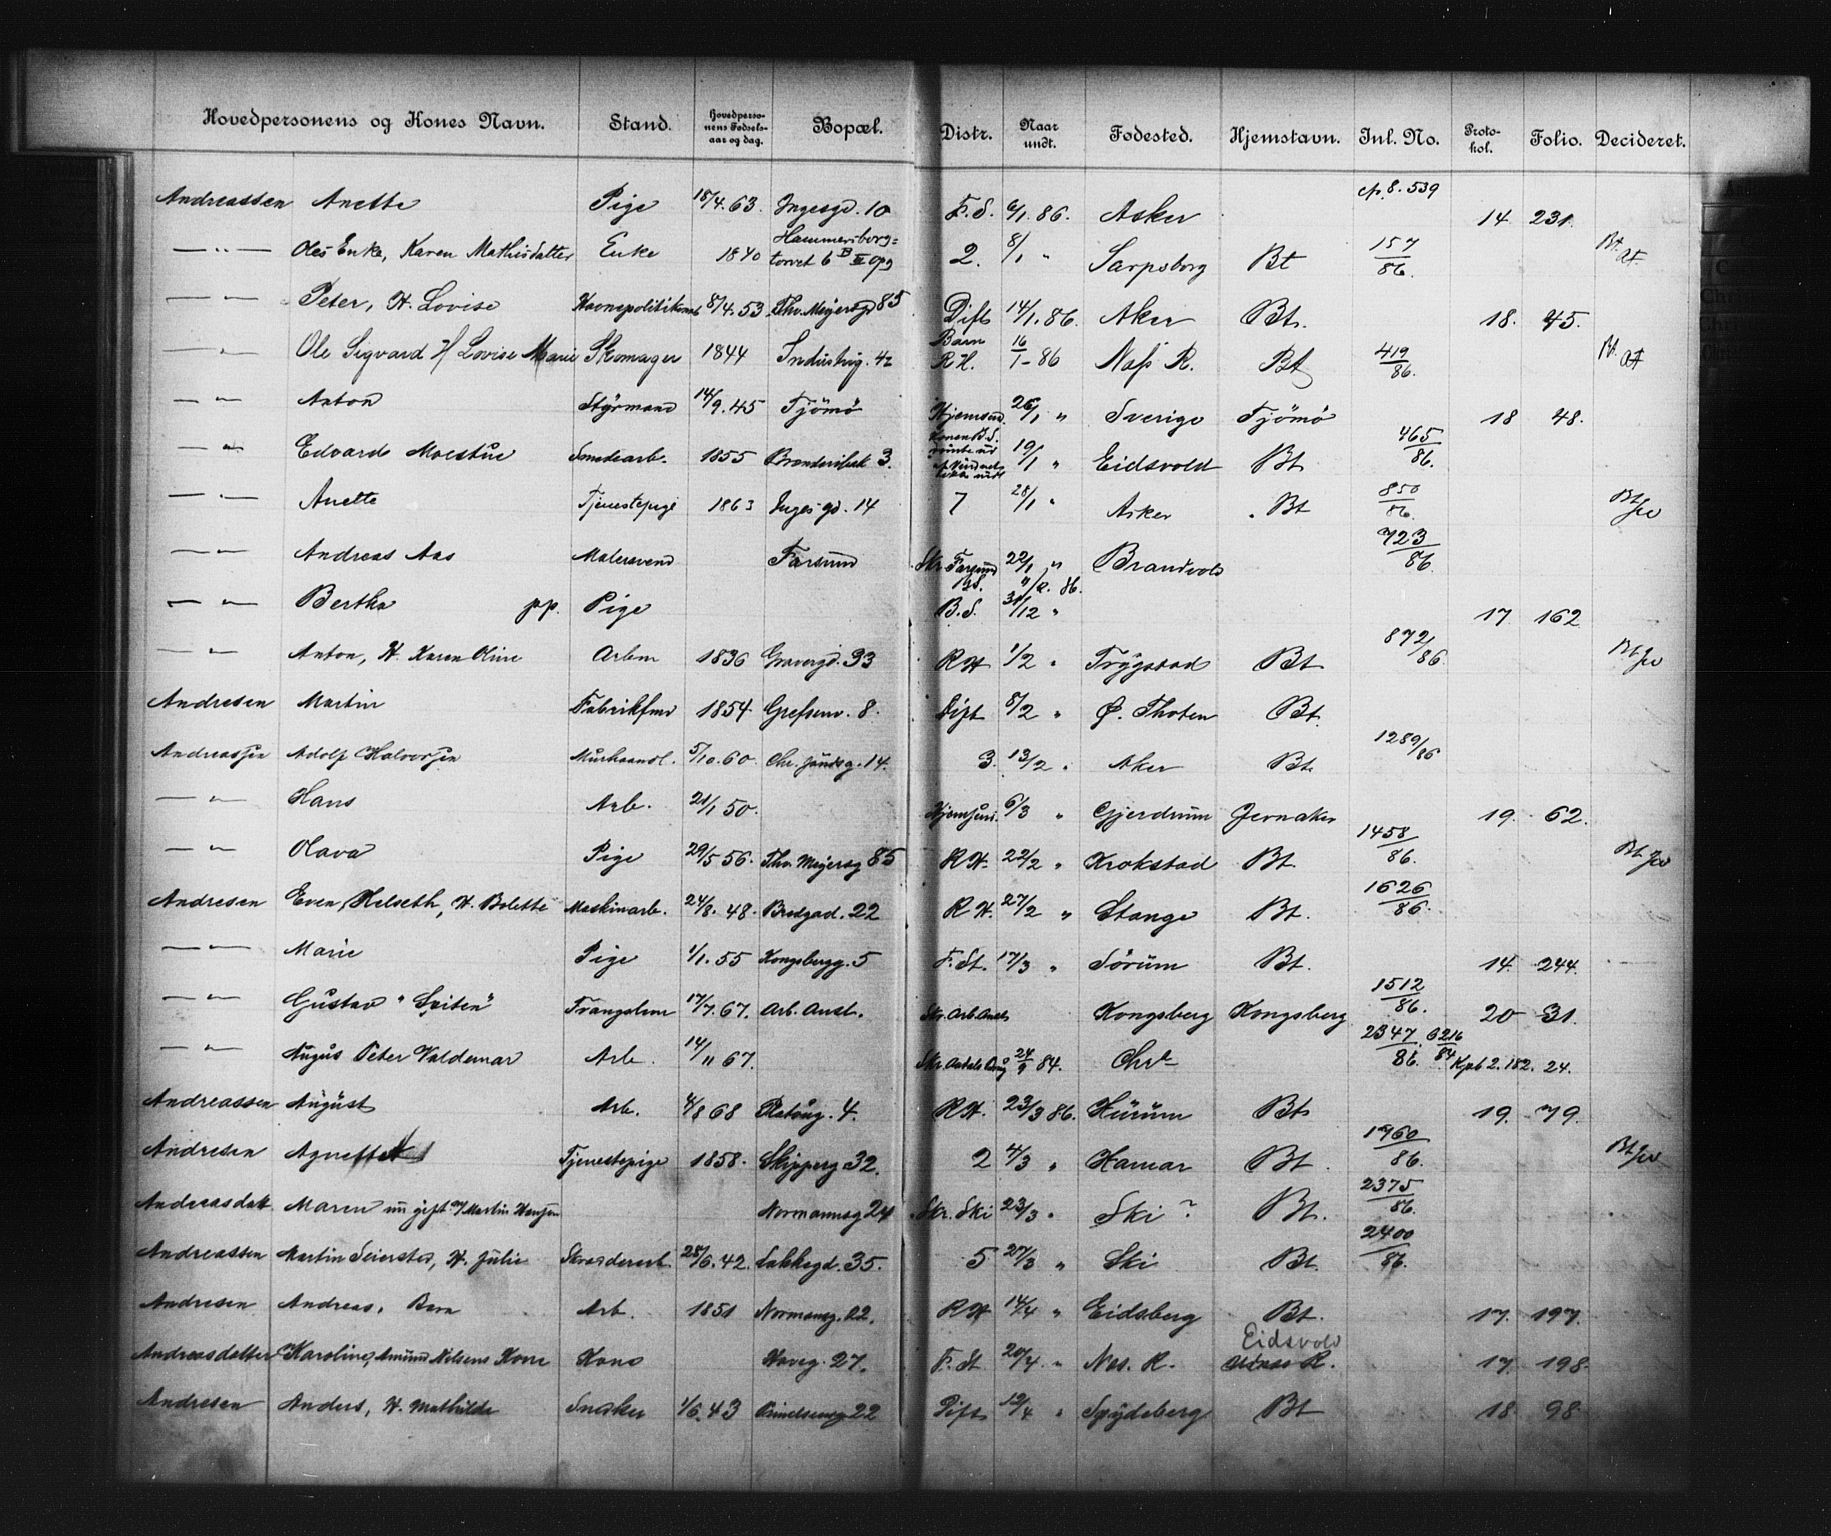 Hovedpersonens og Kones Navn. Stand. Hovedperso-nens Fødsels-aar og dag. Bopæl. Distr. Naar undt. Fødested. Hjemstavn. Inl. No. Proto-kol. Folio. Decideret.
Andreassen Anette Pige 15/4.63. Ingesgd. 10 F.S. 6/1 86. Asker cfr. 8. 539 14 231.
—"— Ols Enke, Karen Mathisdatter Enke 1840 Hammersborg-torvet 6 B II opg 2. 8/1 " Sarpsborg Bt 157/86. Bt. at
—"— Peter, H. Lovise 8/4.53 Thv. Meyersgd 85 14/1.86. Aker Bt. 18. 45.
" Ole Sigvard H Lovise Marie Skomager 1844 Industrig. 42 Barn R.H. 16/1-86 Næs R. Bt 419/86. Bt. at
—"— Anton Styrmand 14/9.45 Tjömö Hjemsend. 26/1 " Sverige Tjömö 18 48.
—"— Edvard Moestue Smedearb. 1855 3. 19/1 " Eidsvold Bt 465/86.
—"— Anette Tjenestepige 1863 Inges gd. 14 7 28/1 " Asker Bt 850/86. Bt
—"— Andreas Aas Malersvend Farsund Skr. Farsund 22/1 " Brandvold 723/86
—"— Bertha pp. Pige B.S. 31/12 " 17 162
—"— Anton, H. Karen Oline Arbm 1836 Gravergd. 33 RH 1/2 " Trygstad Bt 872/86. Bt
Andresen Martin Fabrikfmd 1854 Grefsenv. 8. Dist 8/2 " Ø. Thoten Bt.
Andreassen Adolf Halvorsen Murhaandl. 5/10.60. 14. 3. 13/2 " Aker Bt. 1289/86
—"— Hans Arb. 21/1 50. Hjemsend. 6/3 " Gjerdrum Jevnaker 19. 62.
—"— Olava Pige 29/5 56. Thv. Meyersg 85 R.H. 22/2 " Krokstad Bt. 1458/86. Bt
Andresen Even Helseth, H. Bolette Maskinarb. 24/8.48. Bredgad. 22 R.H. 27/2 " Stange Bt. 1626/86.
—"— Marie Pige 1/1.55 Kongsbergg. 5 F. St. 17/3 " Sörum Bt. 14. 244.
—"— Gustav Trangslem 17/7.67. Arb. Anst. Skr. Arb. Anst Kongsberg Kongsberg 1512/86. 20 31.
—"— Augus Peter Valdemar Arb. 14/11 67. 24/9 84. Chra 2347/86. 6216/84 Kpb 2. 182. 24.
Andreassen August Arb. 4/8 68 4. RH. 23/3 86. Hurum Bt 19. 79.
Andresen Agnethe Tjenestepige 1858. Skipperg 32. 2 4/3 " Hamar Bt. 1960/86. Bt
Andreasdatt Maren nu gift m/ Martin Hansen Normannsg 24 Skr. Ski 23/3 " Ski? Bt. 2375/86.
Andreassen Martin Seiersted, H. Julie 28/6.42. Lakkegd. 35. 5 27/3 " Ski Bt. 2400/86.
Andresen Andreas, Bern Arb. 1851 Normansg. 22. RH 14/4 " Eidsberg Bt. 17. 197.
Andreasdatter Karoline, Amund Nilsens Kone Kone Haveg. 27. F. St 20/4 " Nes. R. Eidsvold R. 17. 198.
Andresen Anders, H. Mathilde Snedker 1/6.43 22 Dist 12/4 " Spydeberg Bt 18. 98.